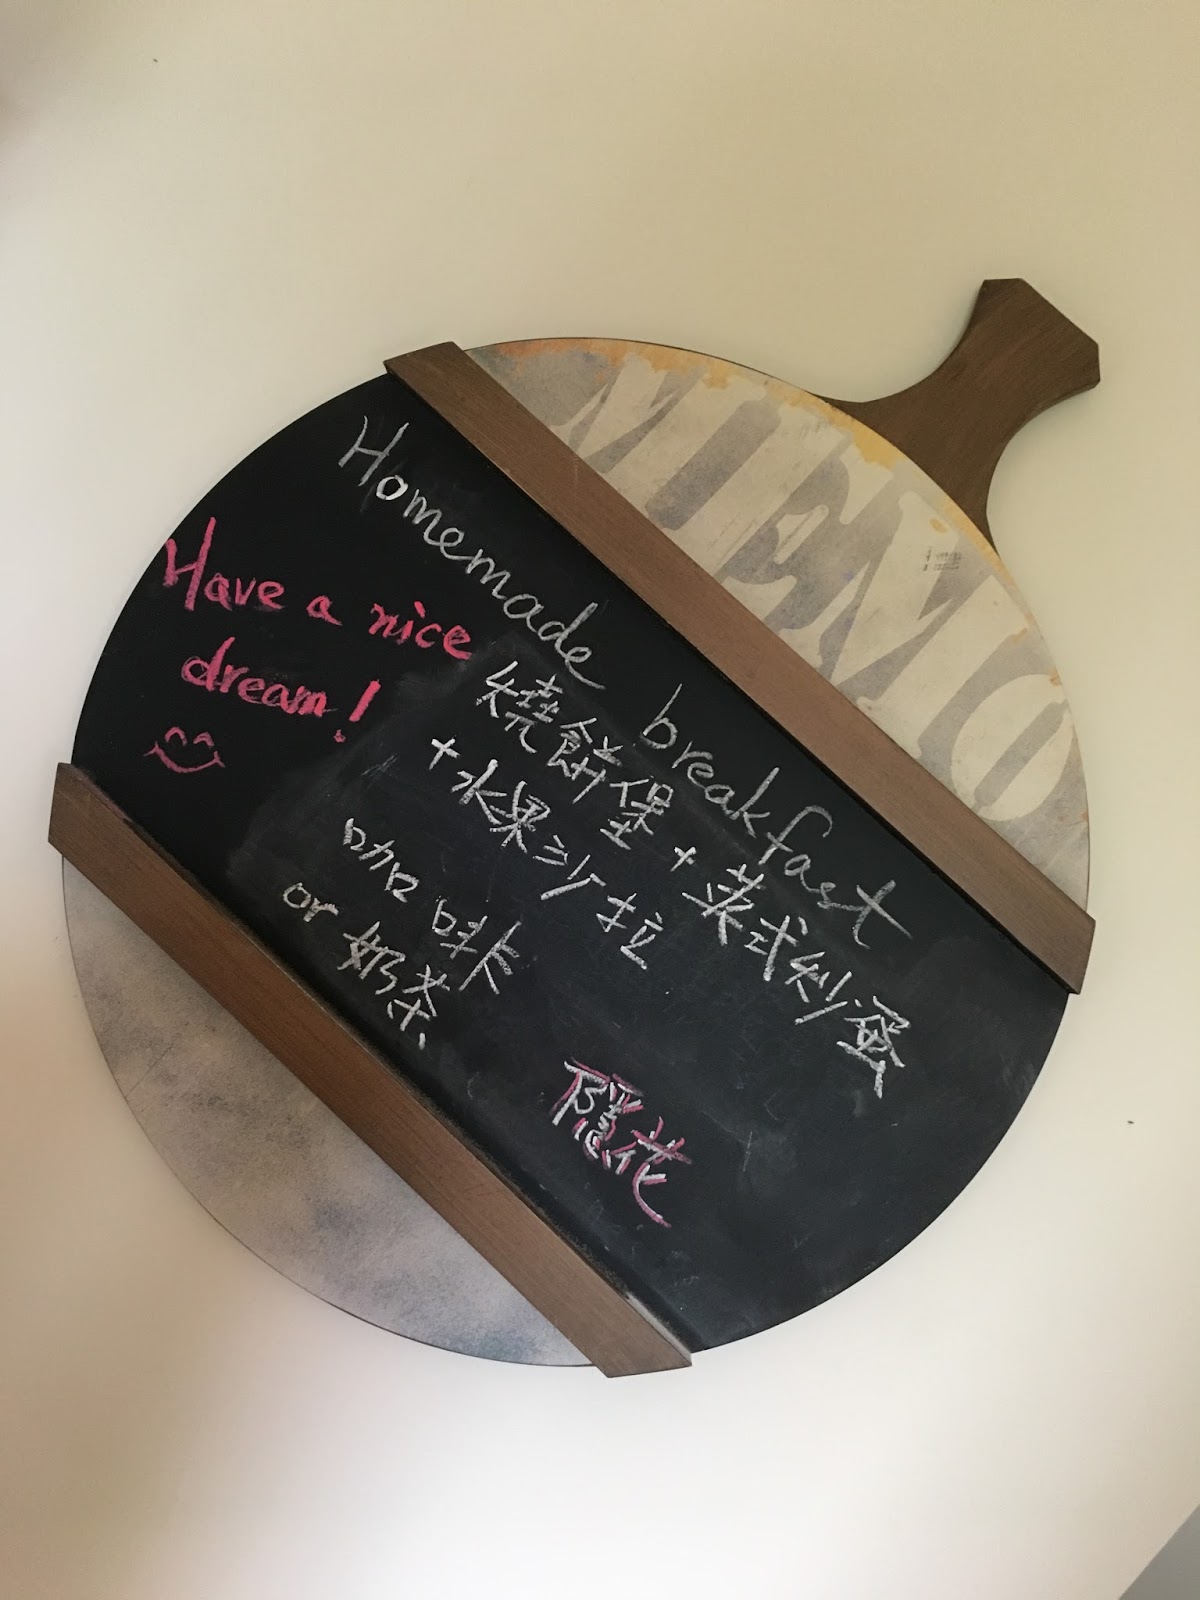 MEMO
Homemade breakfast
燒餅堡+英式炒蛋
+水果沙拉
咖啡
or 奶茶
隱花
Have a nice
dream!